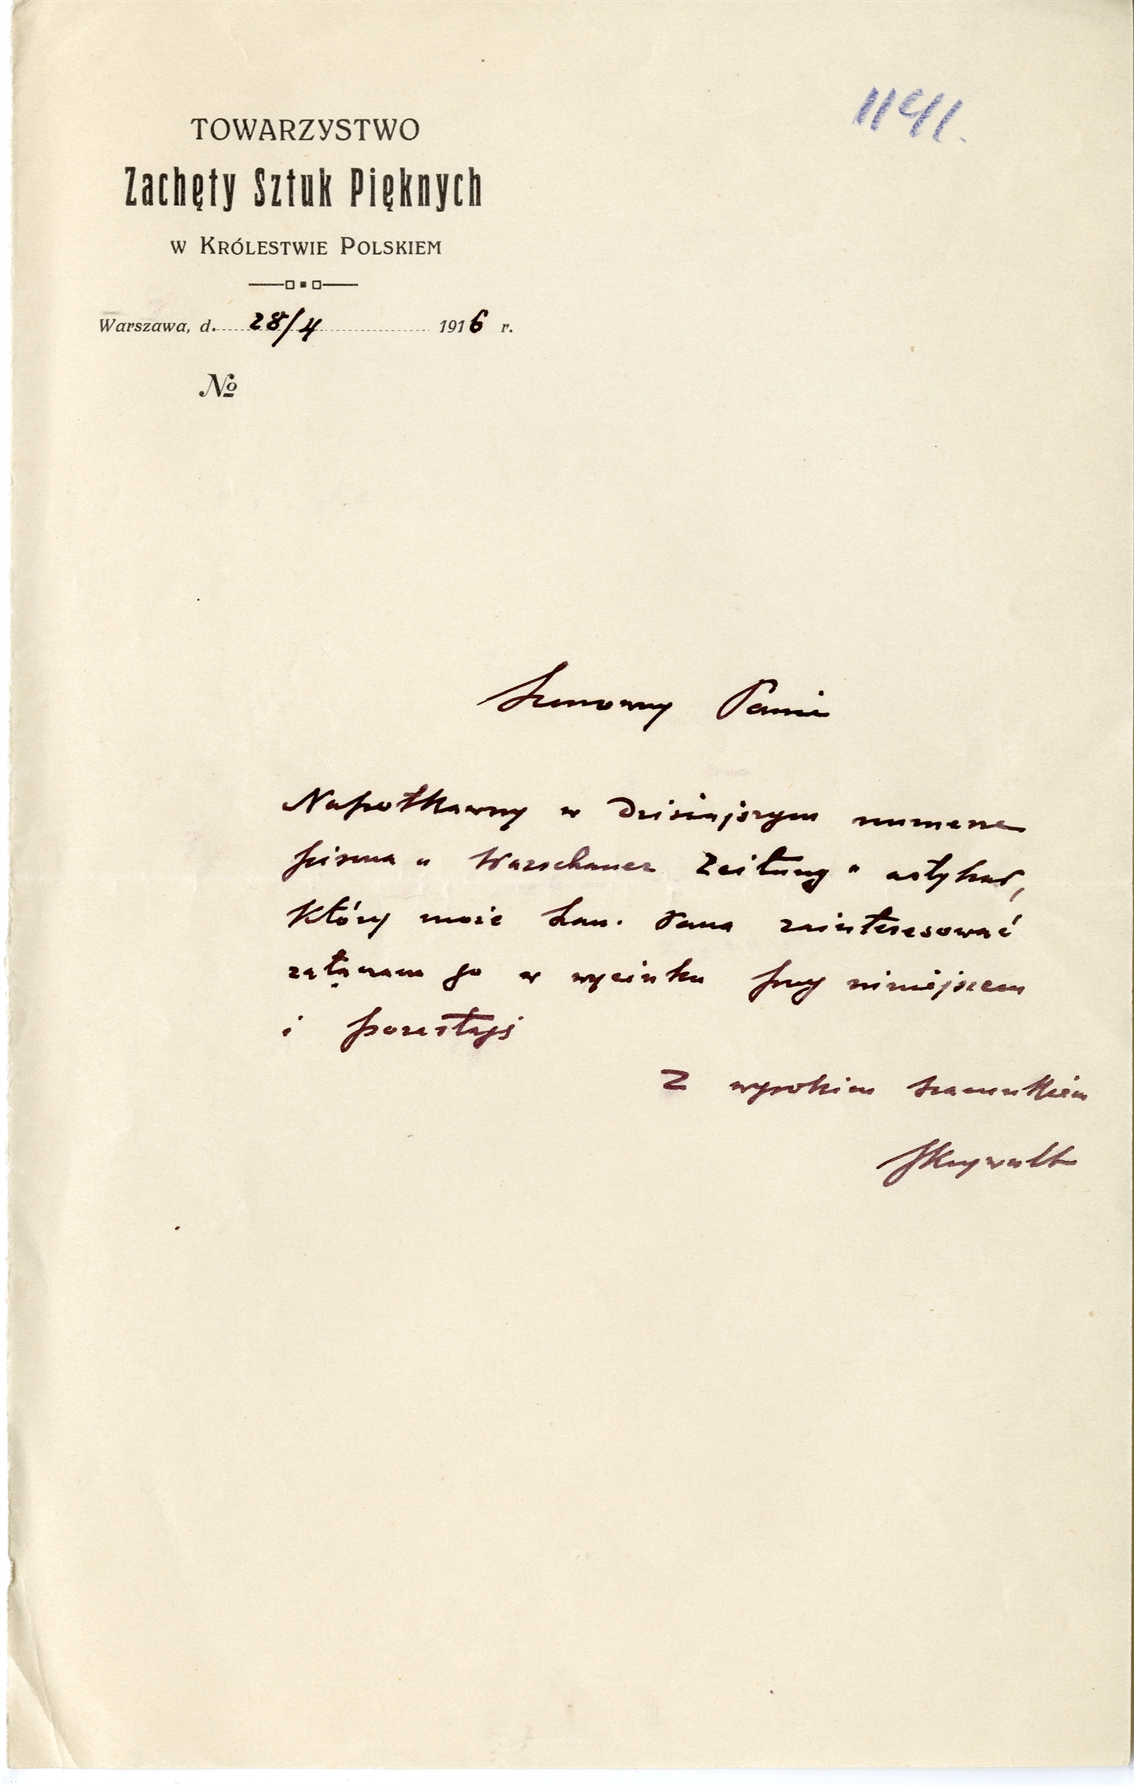 1141.
TOWARZYSTWO
Zachęty Sztuk Pięknych
w Królestwie Polskiem
Warszawa, d. 28/4 1916 r.
№
Szanowny Panie
Napotkawszy w dzisiejszym numerze
pisma „Warschauer Zeitung" artykuł,
który może Szan. Pana zainteresować
załączam go w wycinku przy niniejszem
i pozostaję
Z wysokim szacunkiem